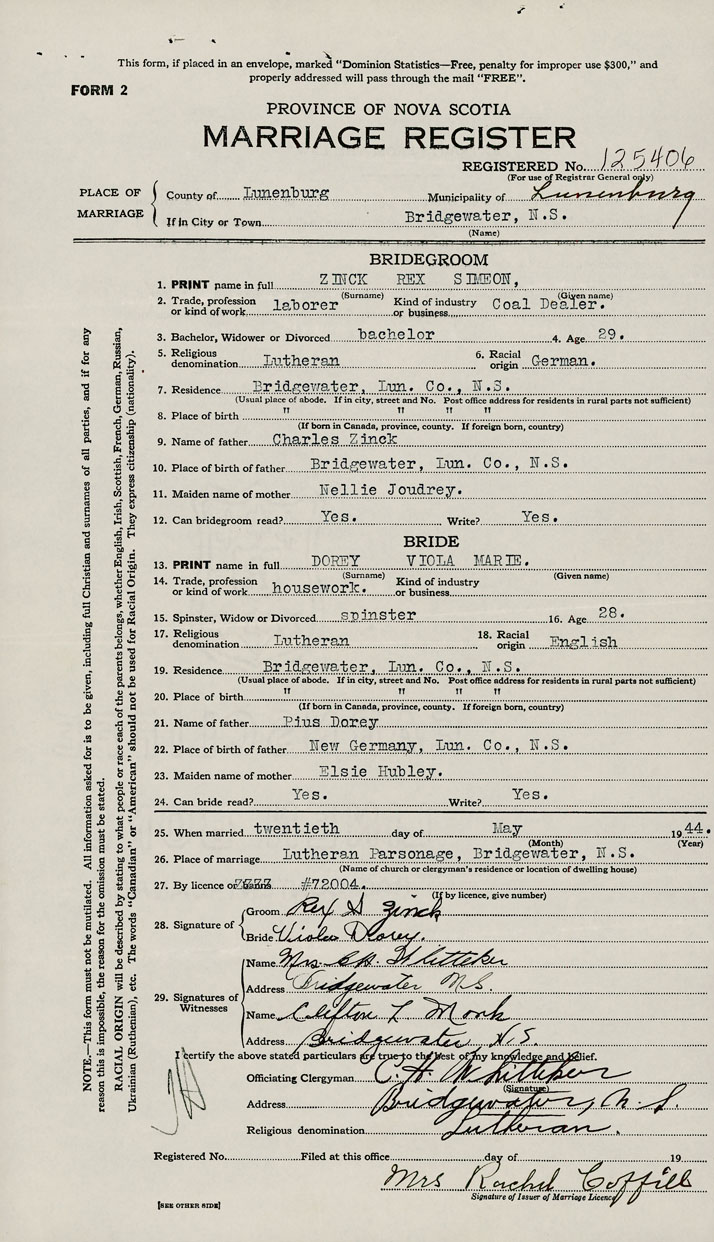 This form, if placed in an envelope, marked "Dominion Statistics—Free, penalty for improper use $300," and
properly addressed will pass through the mail "FREE".
FORM 2
PROVINCE OF NOVA SCOTIA
MARRIAGE REGISTER
REGISTERED No. 125406
(For use of Registrar General only)
PLACE OF MARRIAGE
County of Lunenburg Municipality of Lunenburg
If in City or Town Bridgewater, N.S.
(Name)
BRIDEGROOM
1. PRINT name in full ZINCK REX SIMEON,
(Surname) (Given name)
2. Trade, profession or kind of work laborer Kind of industry or business Coal Dealer.
3. Bachelor, Widower or Divorced bachelor 4. Age 29.
5. Religious denomination Lutheran 6. Racial origin German.
7. Residence Bridgewater, Lun. Co., N.S.
(Usual place of abode. If in city, street and No. Post office address for residents in rural parts not sufficient)
8. Place of birth " " " "
(If born in Canada, province, county. If foreign born, country)
9. Name of father Charles Zinck
10. Place of birth of father Bridgewater, Lun. Co., N.S.
11. Maiden name of mother Nellie Joudrey.
12. Can bridegroom read? Yes. Write? Yes.
BRIDE
13. PRINT name in full DOREY VIOLA MARIE.
(Surname) (Given name)
14. Trade, profession or kind of work housework. Kind of industry or business
15. Spinster, Widow or Divorced spinster 16. Age 28.
17. Religious denomination Lutheran 18. Racial origin English
19. Residence Bridgewater, Lun. Co., N.S.
(Usual place of abode. If in city, street and No. Post office address for residents in rural parts not sufficient)
20. Place of birth " " " "
(If born in Canada, province, county. If foreign born, country)
21. Name of father Pius Dorey
22. Place of birth of father New Germany, Lun. Co., N.S.
23. Maiden name of mother Elsie Hubley.
24. Can bride read? Yes. Write? Yes.
25. When married twentieth day of May 1944.
(Month) (Year)
26. Place of marriage Lutheran Parsonage, Bridgewater, N.S.
(Name of church or clergyman's residence or location of dwelling house)
27. By licence or #72004.
(If by licence, give number)
28. Signature of
Groom Rex S Zinck
Bride Viola Dorey.
29. Signatures of Witnesses
Name Mrs C.H. Whitteker
Address Bridgewater N.S.
Name Clifton L Monk
Address Bridgewater, N.S.
I certify the above stated particulars are true to the best of my knowledge and belief.
Officiating Clergyman C. H. Whitteker
(Signature)
Address Bridgewater, N.S.
Religious denomination Lutheran.
Registered No. Filed at this office day of 19
Mrs Rachel Coffill
Signature of Issuer of Marriage Licence
[SEE OTHER SIDE]
NOTE.—This form must not be mutilated. All information asked for is to be given, including full Christian and surnames of all parties, and if for any
reason this is impossible, the reason for the omission must be stated.
RACIAL ORIGIN will be described by stating to what people or race each of the parents belongs, whether English, Irish, Scottish, French, German, Russian,
Ukrainian (Ruthenian), etc. The words "Canadian" or "American" should not be used for Racial Origin. They express citizenship (nationality).